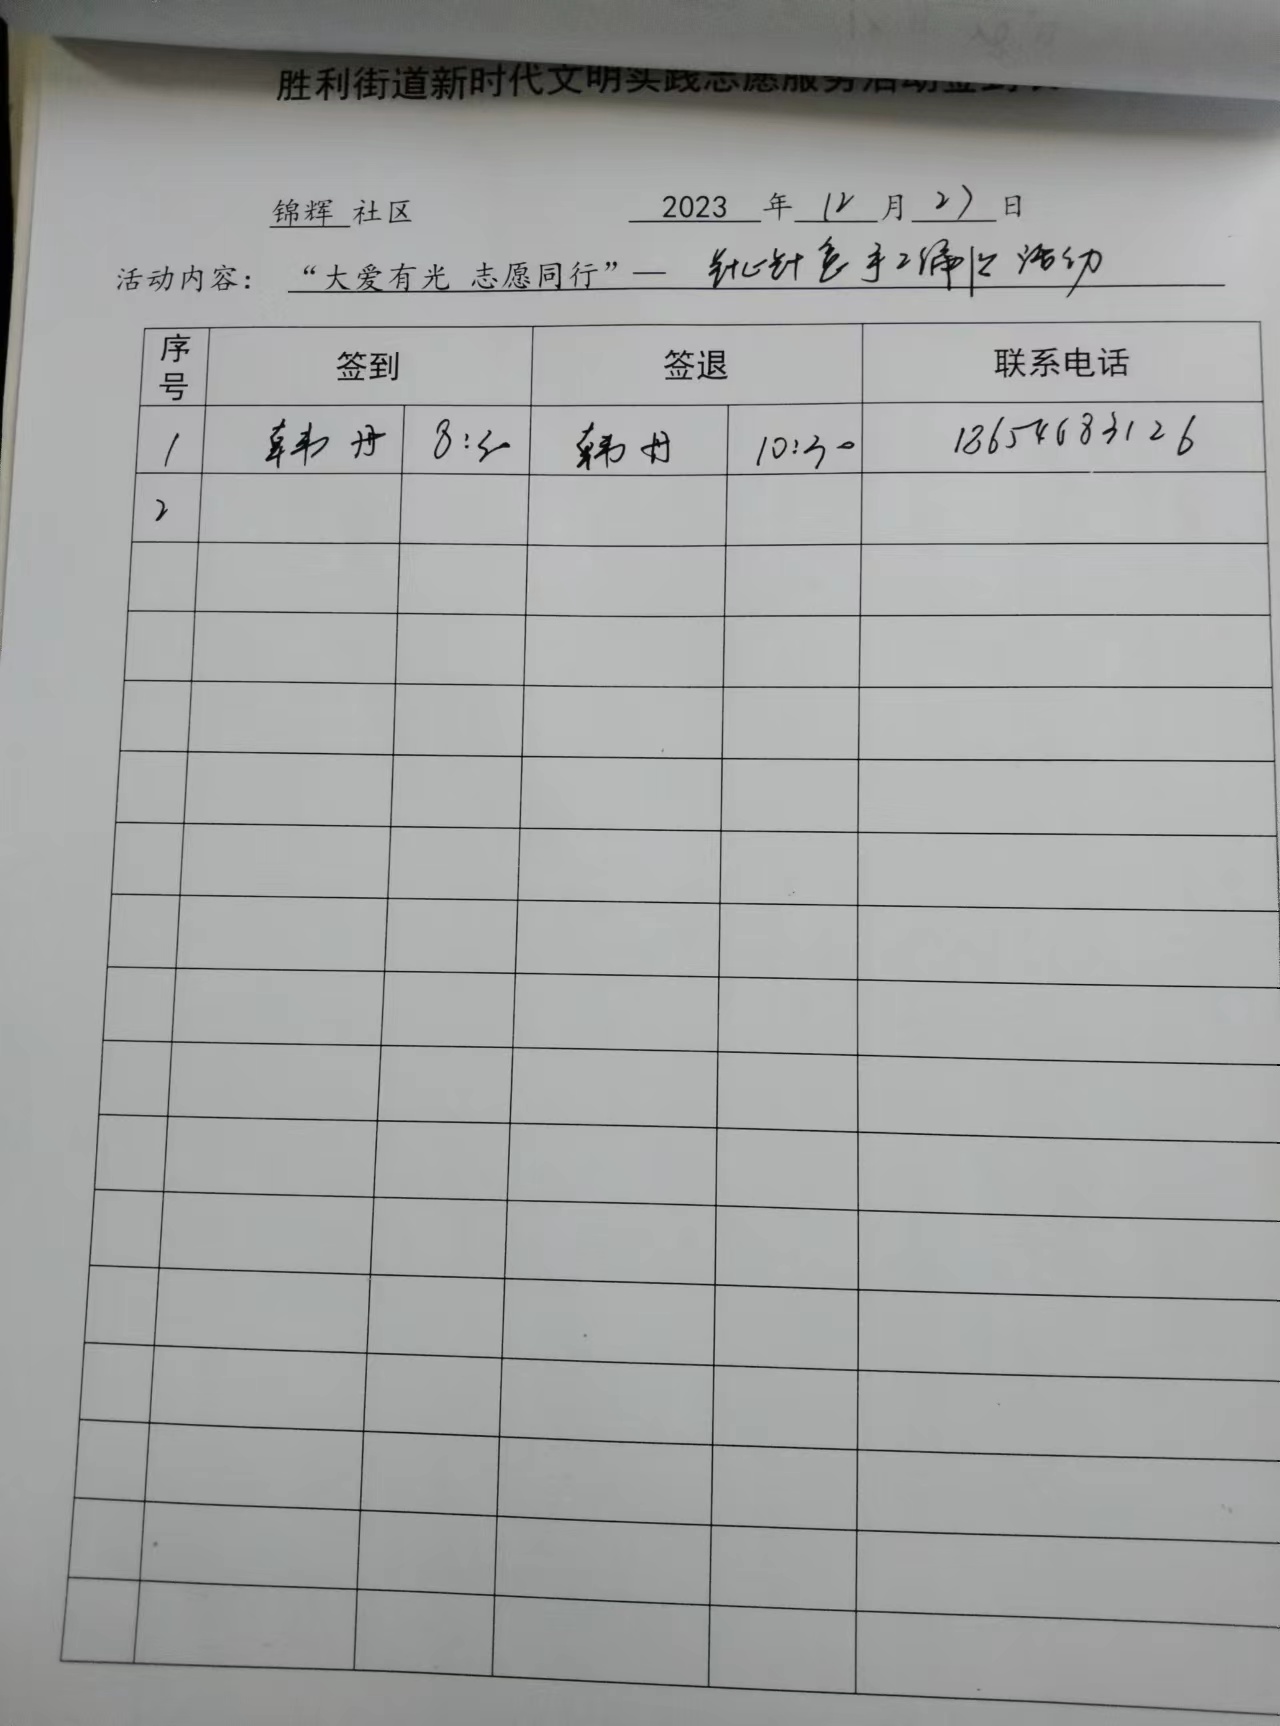 胜利街道新时代文明实践志愿服务活动签到表
锦辉 社区 2023 年 12 月 27 日
活动内容： “大爱有光 志愿同行”— 针心针意手工编织活动
序号 签到 签退 联系电话
1 韩丹 8:30 韩丹 10:30 13654683126
2